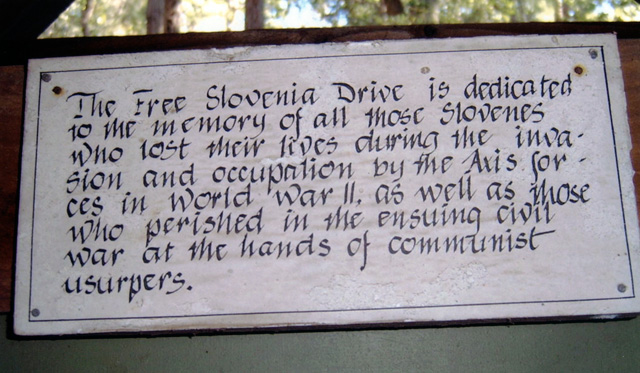 The Free Slovenia Drive is dedicated
to the memory of all those Slovenes
who lost their lives during the inva-
sion and occupation by the Axis for-
ces in World War II, as well as those
who perished in the ensuing civil
war at the hands of communist
usurpers.